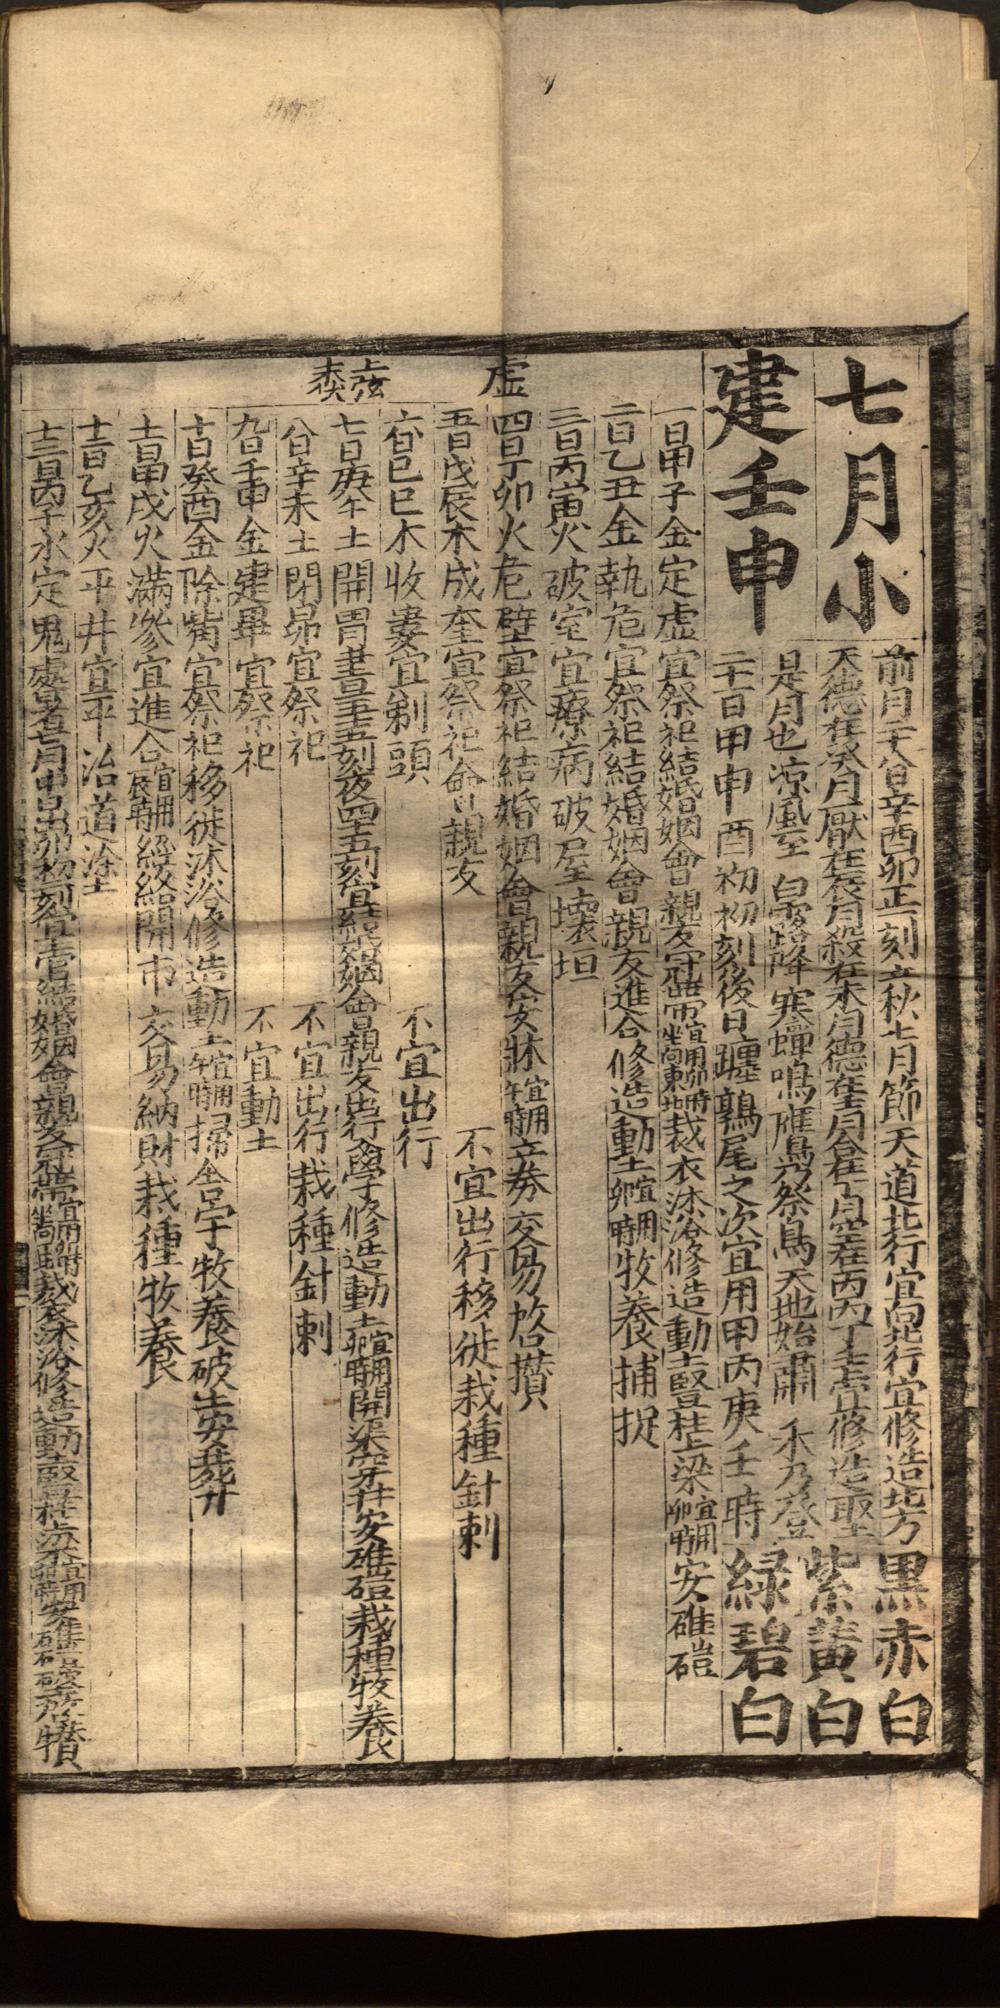 七月小
建壬申
前月二十八日辛酉卯正一刻立秋七月節天道北行宜向北行宜修造北方
天德在癸月厭在辰月殺在未月德在壬月合在丁月空在丙丙丁壬癸宜修造取土
是月也涼風至 白露降 寒蟬鳴 鷹乃祭鳥 天地始肅 禾乃登
二十一日甲申酉初初刻後日躔鶉尾之次宜用甲丙庚壬時
黑赤白
紫黃白
綠碧白
一日甲子金定虛宜祭祀結婚姻會親友冠帶宜用卯時坐向東北裁衣沐浴修造動土豎柱上梁宜用卯時安碓磑
二日乙丑金執危宜祭祀結婚姻會親友進合修造動土宜用卯時牧養捕捉
三日丙寅火破室宜療病破屋壞垣
虛
四日丁卯火危壁宜祭祀結婚姻會親友安牀宜用午時立券交易啓攢
五日戊辰木成奎宜祭祀會親友 不宜出行移徙栽種針刺
六日己巳木收婁宜剃頭 不宜出行
上弦
七日庚午土開胃晝五十五刻夜四十五刻宜結婚姻會親友出行入學修造動土宜用卯時開渠穿井安碓磑栽種牧養
八日辛未土閉昴宜祭祀 不宜出行栽種針刺
九日壬申金建畢宜祭祀 不宜動土
十日癸酉金除觜宜祭祀移徙沐浴修造動土宜用午時掃舍宇牧養破土安葬
十一日甲戌火滿參宜進合宜用辰時經絡開市交易納財栽種牧養
十二日乙亥火平井宜平治道塗
十三日丙子水定鬼處暑七月中日出卯初三刻宜結婚姻會親友冠帶裁衣沐浴修造動土豎柱上梁宜用卯時安碓磑